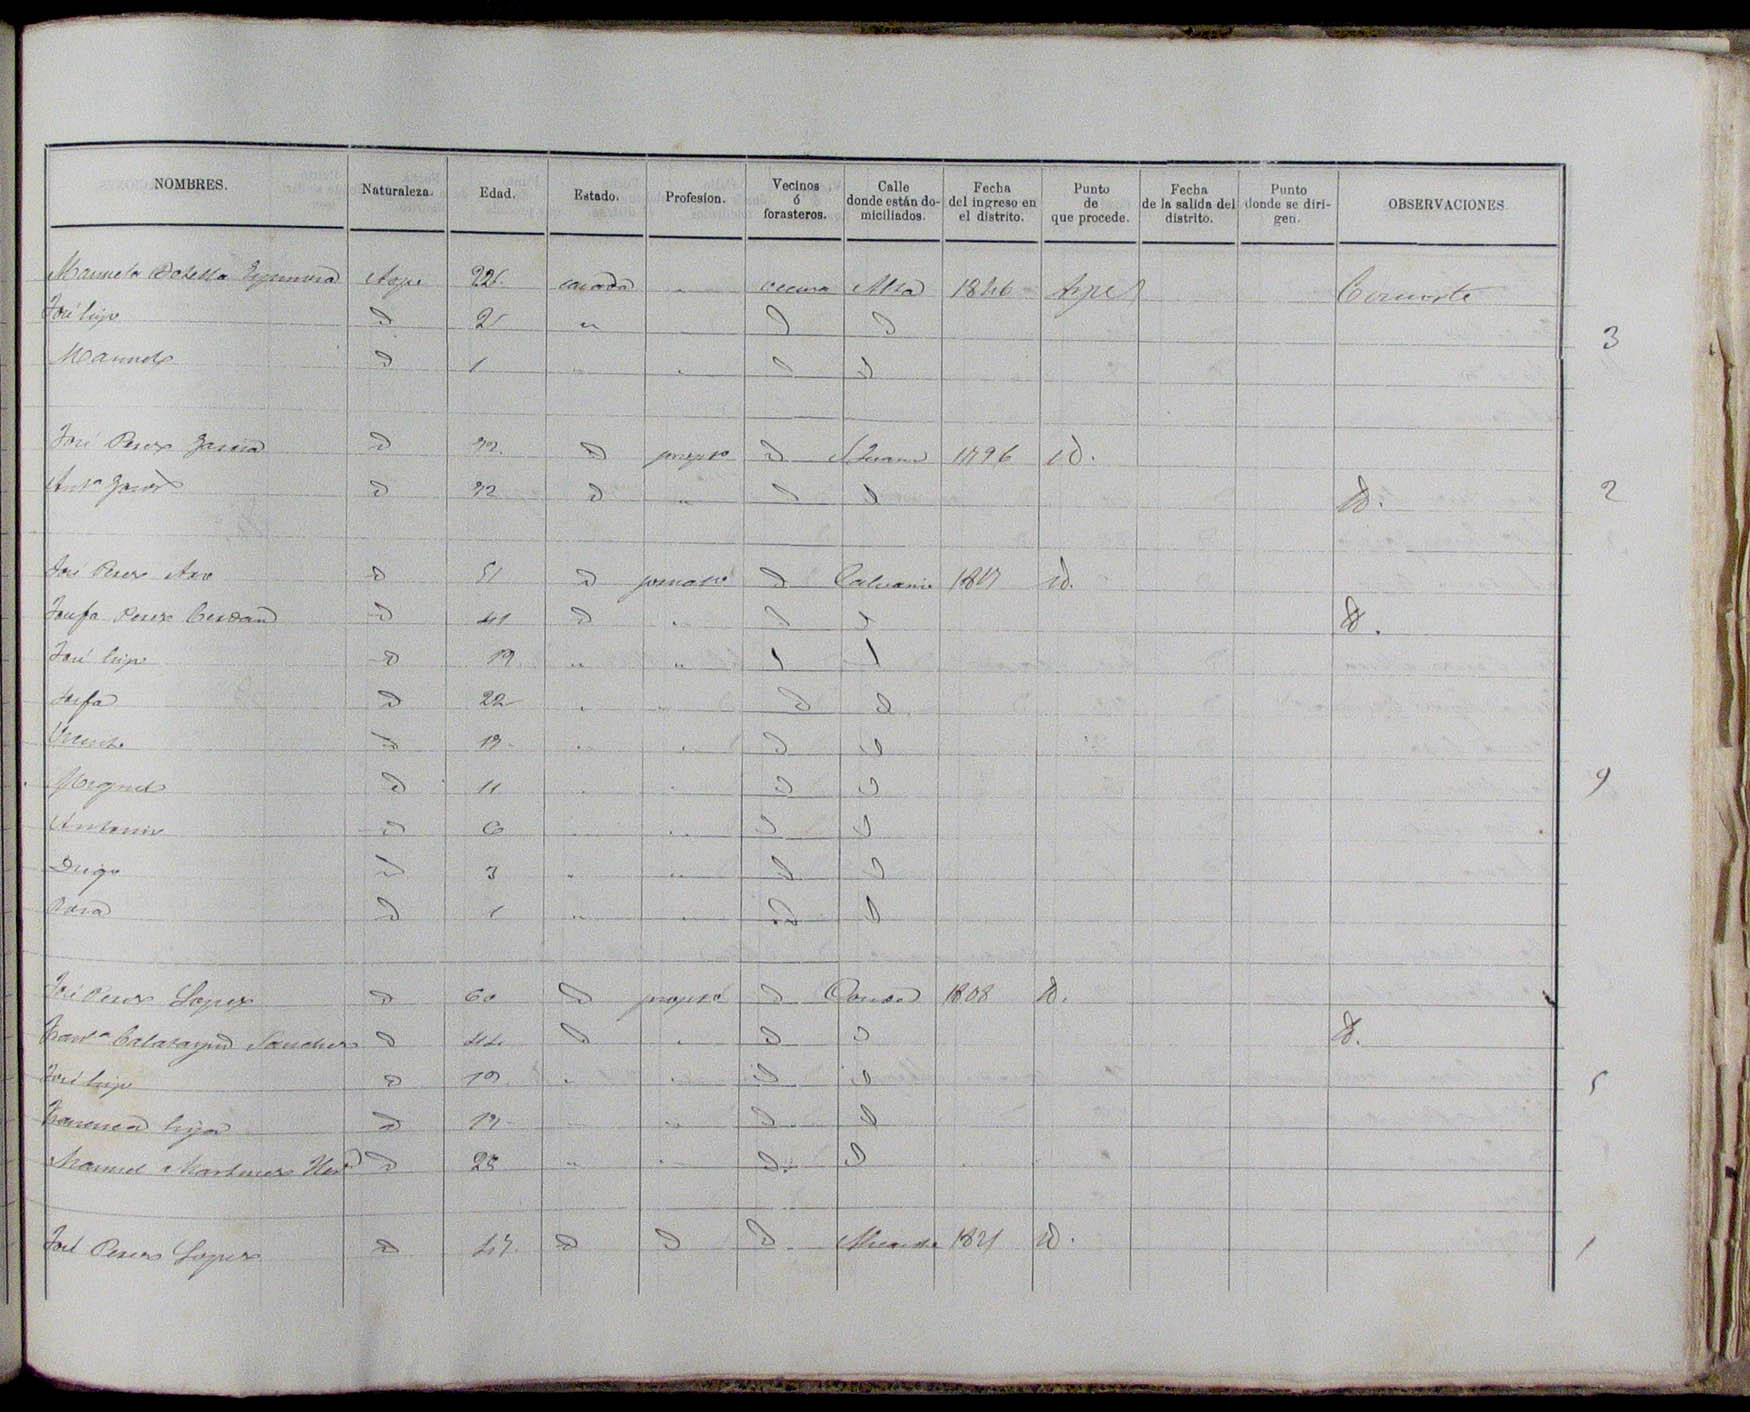 NOMBRES. Naturaleza. Edad. Estado. Profesion. Vecinos ó forasteros. Calle donde están domiciliados. Fecha del ingreso en el distrito. Punto de que procede. Fecha de la salida del distrito. Punto donde se dirigen. OBSERVACIONES
Manuela Botella Aspe casada vecina Alta 1846 Aspe Consorte
José hijo D 2 " D D
3
Manuel D 1 " " D D
José Perez Garcia D 72 D propro D S. Juan 1796 id.
Anta D 72 D " D D id.
2
José Perez D 51 D jornalro D Calvario 1817 id.
Josefa Perez Cerdan D 41 D " D D id.
José hijo D 19 " " D D
Josefa D 22 " " D D
Vicente D 13 " " D D
Miguel D 11 " " D D
9
Antonio D 6 " " D D
Diego D 3 " " D D
Rosa D 1 " " D D
José Perez Lopez D 60 D propro D 1808 id.
Franca Calatayud Sanchez D 44 D " D D id.
José hijo D 19 " " D D
5
Francisca hija D 13 " " D D
Manuel Martinez D 28 " " D D
José Perez Lopez D 47 D D D 1821 id.
1